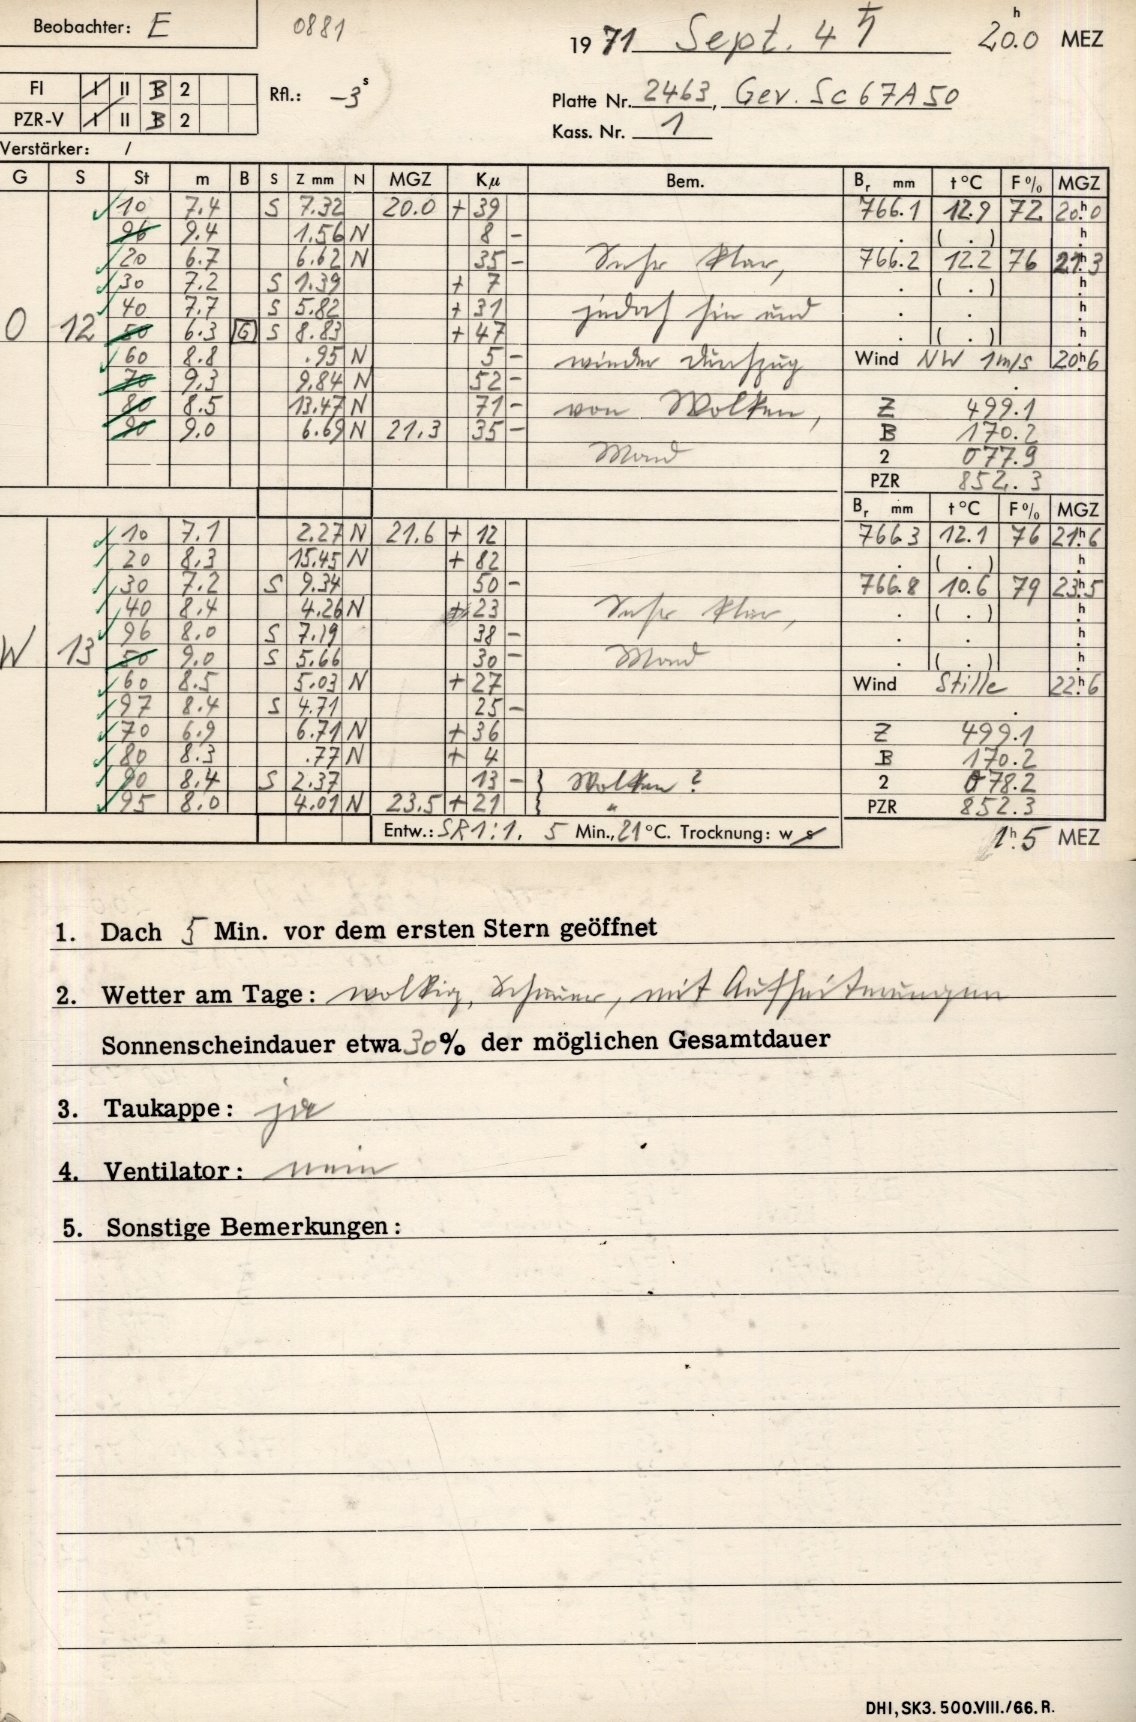 Beobachter: E 0881 1971 Sept. 4 ♄ 20.0 h MEZ
FI I II B 2 Rfl.: -3 s Platte Nr. 2463, Gev. Sc 67A50
PZR-V I II B 2 Kass. Nr. 1
Verstärker: /
G S St m B S Z mm N MGZ Kμ Bem. Br mm t°C F% MGZ
10 7.4 S 7.32 20.0 + 39 766.1 12.9 72 20h0
96 9.4 1.56 N 8 - . ( . ) h
20 6.7 6.62 N 35 - Sehr klar, 766.2 12.2 76 21h3
30 7.2 S 1.39 + 7 . ( . ) h
40 7.7 S 5.82 + 31 jedoch hin und . . h
O 12 50 6.3 G S 8.83 + 47 . ( . ) h
60 8.8 .95 N 5 - wieder Durchzug Wind NW 1m/s 20h6
70 9.3 9.84 N 52 - .
80 8.5 13.47 N 71 - von Wolken, Z 499.1
90 9.0 6.69 N 21.3 35 - B 170.2
Mond 2 077.9
PZR 852.3
Br mm t°C F% MGZ
10 7.1 2.27 N 21.6 + 12 766.3 12.1 76 21h6
20 8.3 15.45 N + 82 . ( . ) h
30 7.2 S 9.34 50 - 766.8 10.6 79 23h5
40 8.4 4.26 N + 23 Sehr klar, . ( . ) h
96 8.0 S 7.19 38 - . . h
W 13 50 9.0 S 5.66 30 - Mond . ( . ) h
60 8.5 5.03 N + 27 Wind Stille 22h6
97 8.4 S 4.71 25 - .
70 6.9 6.71 N + 36 Z 499.1
80 8.3 .77 N + 4 B 170.2
90 8.4 S 2.37 13 - } Wolken? 2 078.2
95 8.0 4.01 N 23.5 + 21 { " PZR 852.3
Entw.: SR1:1, 5 Min., 21 °C. Trocknung: w s 1h.5 MEZ
1. Dach 5 Min. vor dem ersten Stern geöffnet
2. Wetter am Tage: wolkig, Schauer, mit Aufheiterungen
Sonnenscheindauer etwa 30% der möglichen Gesamtdauer
3. Taukappe: ja
4. Ventilator: nein
5. Sonstige Bemerkungen:
DHI, SK3. 500.VIII./66. R.